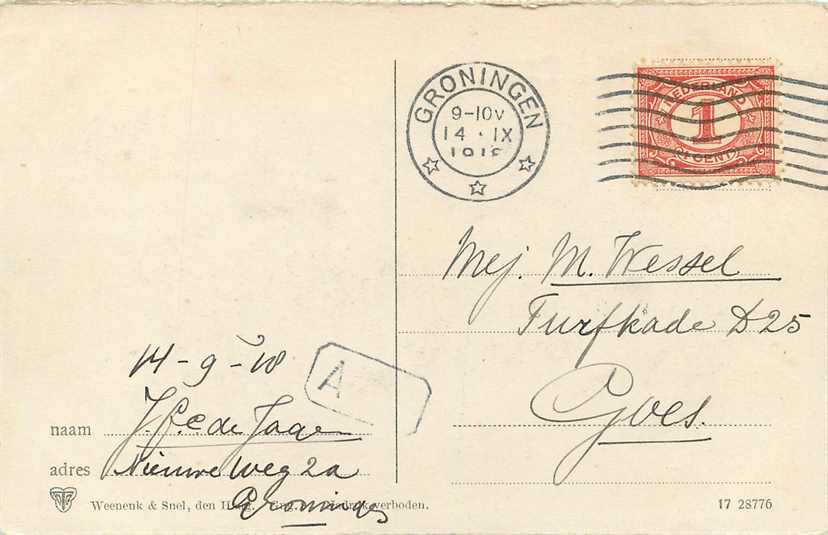 GRONINGEN
9-10V
14 · IX
NEDERLAND
1
CENT
Mej. M. Wessel
Turfkade D25
Goes.
14-9-'10
A
naam J. de Jage
adres Nieuwe Weg 2a
Groningen
Weenenk & Snel, den verboden.
17 28776